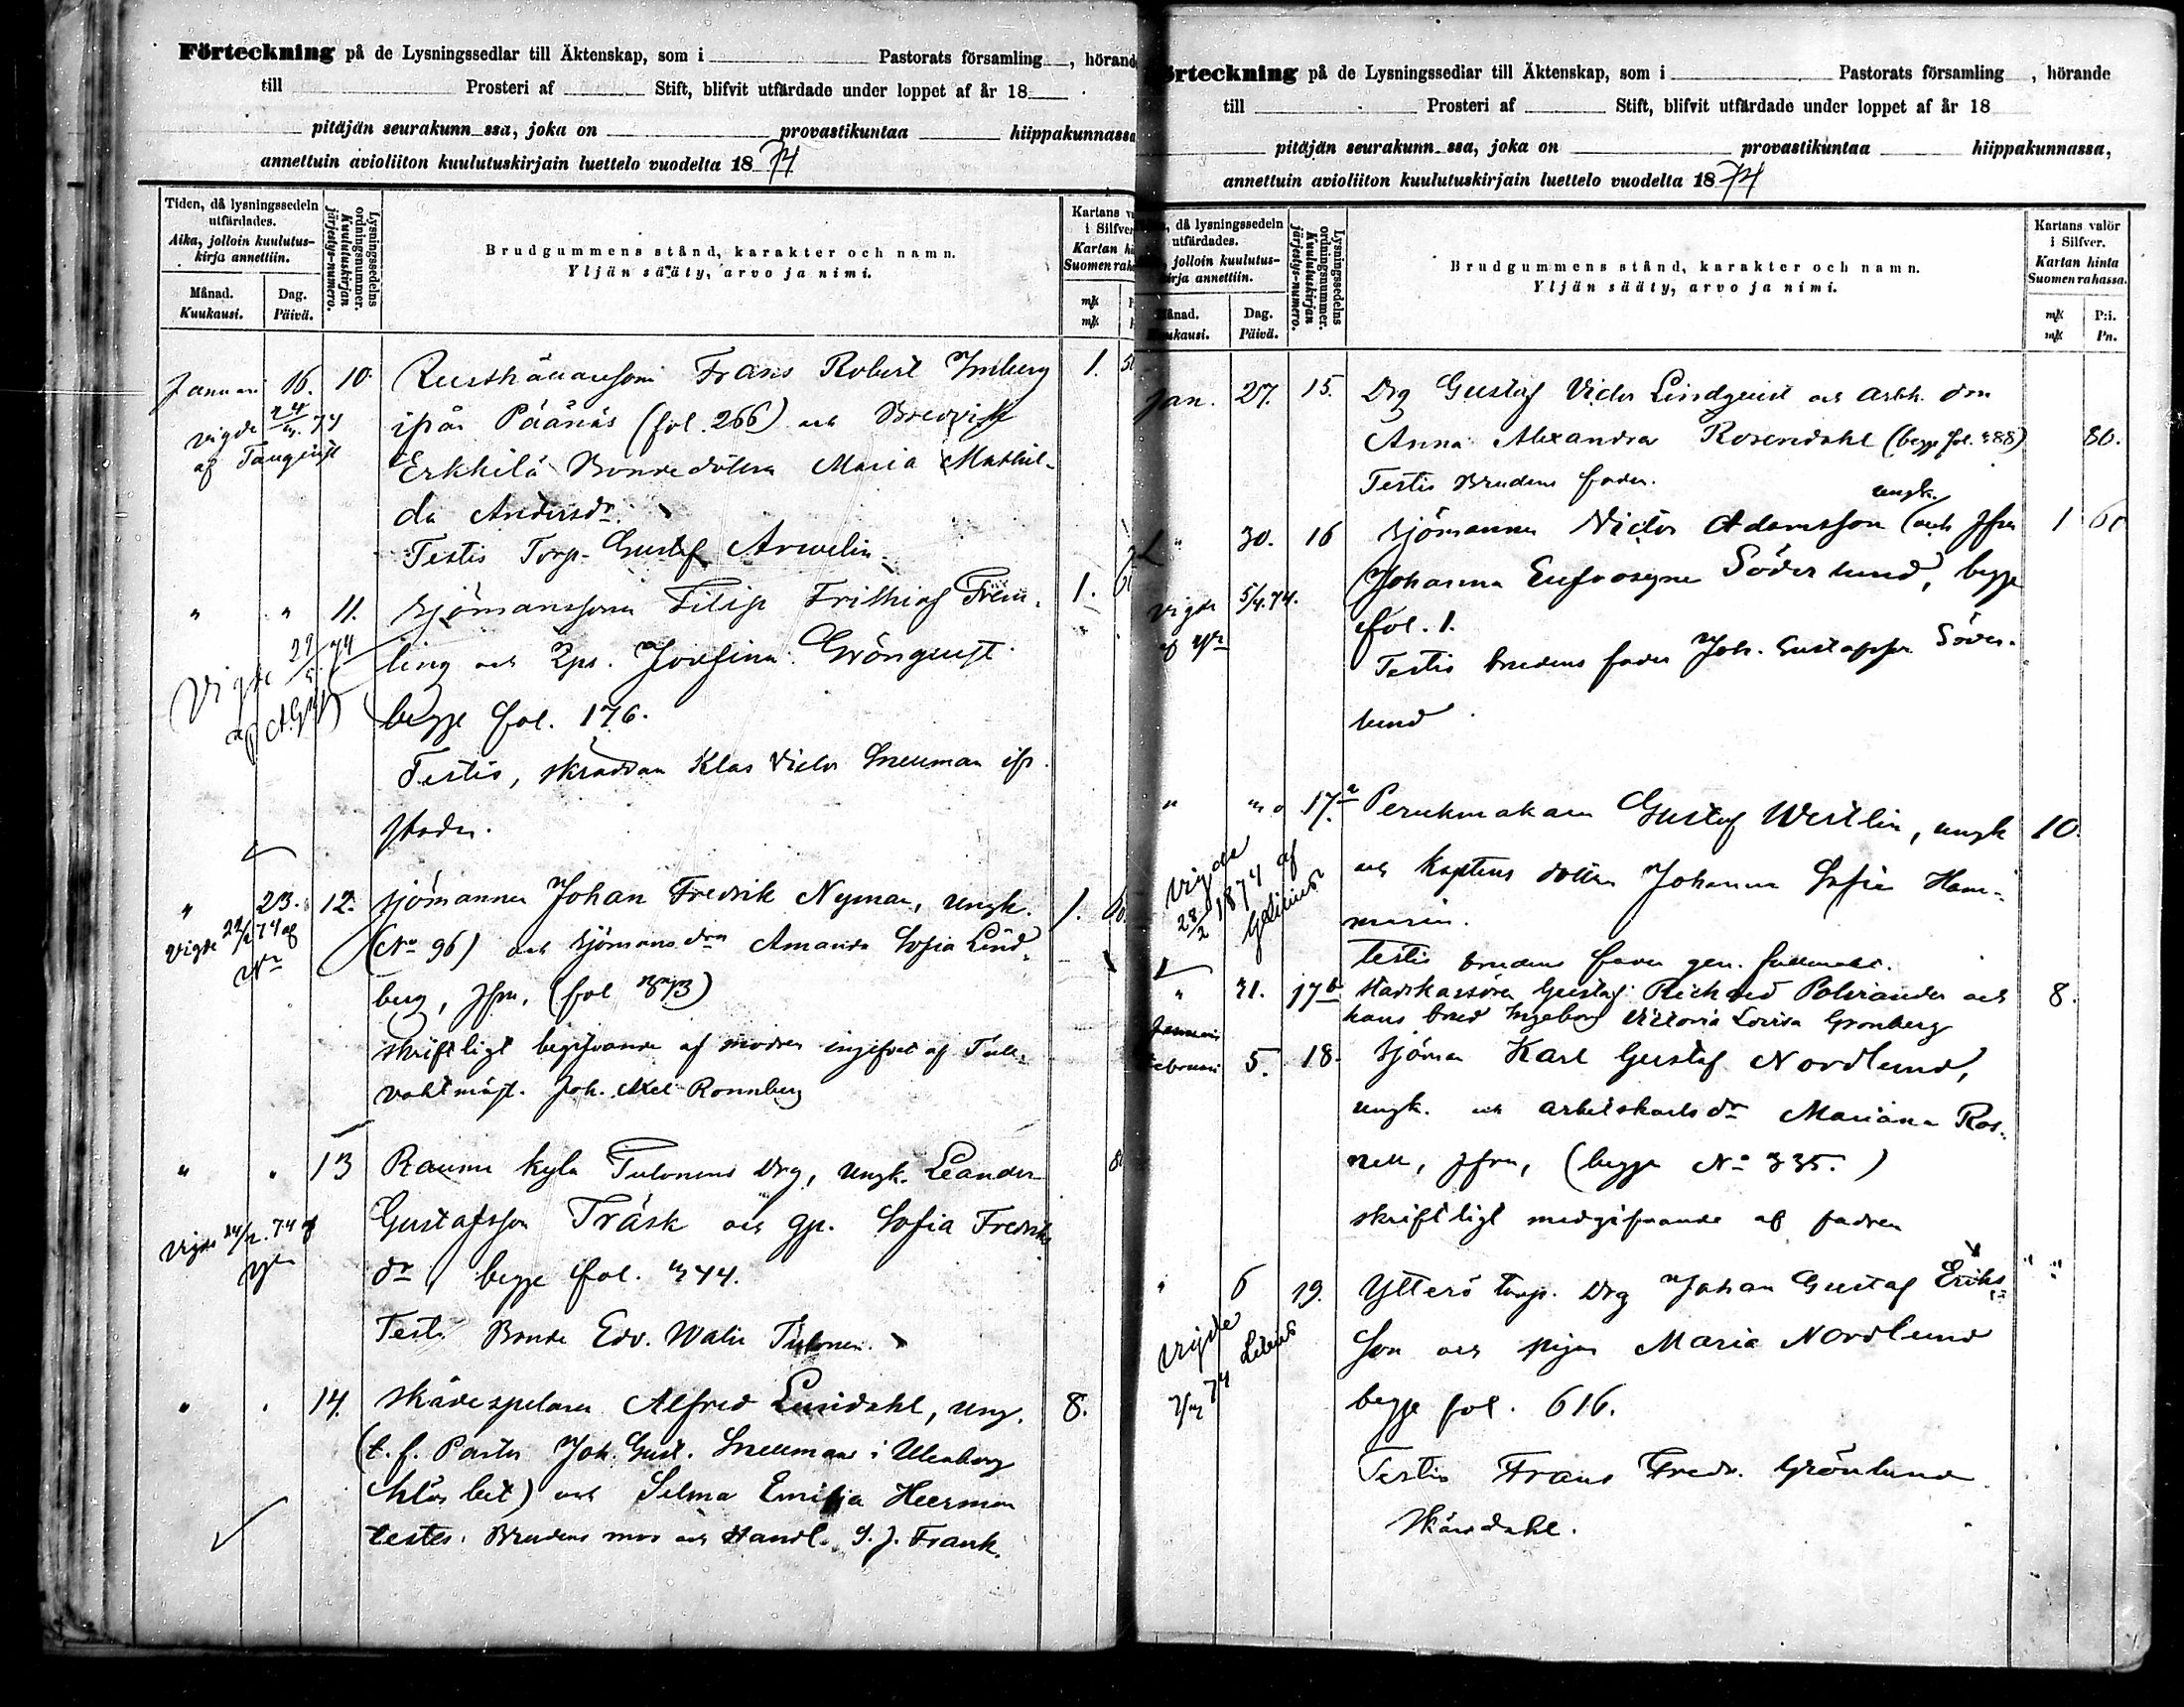 Förteckning på de Lysningssedlar till Äktenskap, som i Pastorats församling , hörande
till Prosteri af Stift, blifvit utfärdade under loppet af år 18
pitäjän seurakunn ssa, joka on provastikuntaa hiippakunnassa
annettuin avioliiton kuulutuskirjain luettelo vuodelta 1874
Tiden, då lysningssedeln utfärdades.
Aika, jolloin kuulutus-kirja annettiin.
Månad. Kuukausi.
Dag. Päivä.
Lysningssedelns ordningsnummer.
Kuulutuskirjan järjestys-numero.
Brudgummens stånd, karakter och namn.
Yljän sääty, arvo ja nimi.
Kartans
i Silfver
Kartan
Suomen
mk
mk
Januari 16. 10. Frans Robert Imberg 1. 50
ifrån Päänäs (fol. 266) och
vigde 74
af Tangqvist
Erkkilä Bondedottren Maria Mathil-
da Andersdr.
Testis Torp. Gustaf Arwelin
" " 11. Sjömanssonen Filip Frithiof 1. 60
ling och Josefina Grönqvist
Vigde 74
begge fol. 176.
Testis, skräddaren Klas Victor Snellman ifr.
staden.
" 23. 12. Sjömannen Johan Fredrik Nyman, ungk. 1. 60
Vigde 22/2 74 af
(No 96) och sjömans drn Amanda Sofia Lind-
berg, jfru, (fol 373)
skriftligt begifvande af modren ingifvet af Tull-
vaktmäst. Joh. Axel Ronnberg
" " 13 Raumo kyla Tulonens Drg, ungk. Leander 80
Gustafsson Träsk och gp. Sofia Fredriks
Vigde 24/2. 74 af
dr, begge fol. 344.
Testis Bonde Edv. Tulonen.
" " 14. Skådespelaren Alfred Lundahl, ung. 8.
(t. f. Pastor Joh. Gust. Snellmans i Uleåborg
bet) och Selma Emilia Heerman
testes. Brudens mor och Handl. J. Frank.
Förteckning på de Lysningssedlar till Äktenskap, som i Pastorats församling , hörande
till Prosteri af Stift, blifvit utfärdade under loppet af år 18
pitäjän seurakunn ssa, joka on provastikuntaa hiippakunnassa,
annettuin avioliiton kuulutuskirjain luettelo vuodelta 1874
då lysningssedeln utfärdades.
jolloin kuulutus-kirja annettiin.
Månad. Kuukausi.
Dag. Päivä.
Lysningssedelns ordningsnummer.
Kuulutuskirjan järjestys-numero.
Brudgummens stånd, karakter och namn.
Yljän sääty, arvo ja nimi.
Kartans valör
i Silfver.
Kartan hinta
Suomen rahassa.
mk P:i.
mk Pn.
Jan. 27. 15. Drg Gustaf Victor Lindqvist och arbk. drn
Anna Alexandra Rosendahl (begge fol. 488) 80.
Testis Brudens fader.
ungk.
" 30. 16 Sjömannen Victor Adamsson och Jfru 1 60
Johanna Eufrosyne Söderlund, begge
vigde 5/4. 74.
fol. 1.
Testis brudens fader Joh. Gustafsson Söder-
lund
" 17a Perukmakaren Gustaf Westlin, ungk 10.
och Kaptens dottren Johanna Sofia Ham-
Vigde 28/2 1874 af
marin.
Testis brudens fader gen. fullmakt.
" 31. 17b Stadskassören Gustaf Richard Polviander och 8.
hans brud Ingeborg Victoria Lovisa Gronberg
Januari
Februari 5. 18. Sjöman Karl Gustaf Nordlund,
ungk. och arbetskarls dr Mariana Ros-
nell, jfru, (begge No 335.)
skriftligt medgifvande af fadren
" 6 19. Ytterö torp. Drg Johan Gustaf Eriks- " "
Vigde
son och pigan Maria Nordlund
74
begge fol. 616.
Testis Frans Fredr. Grönlund